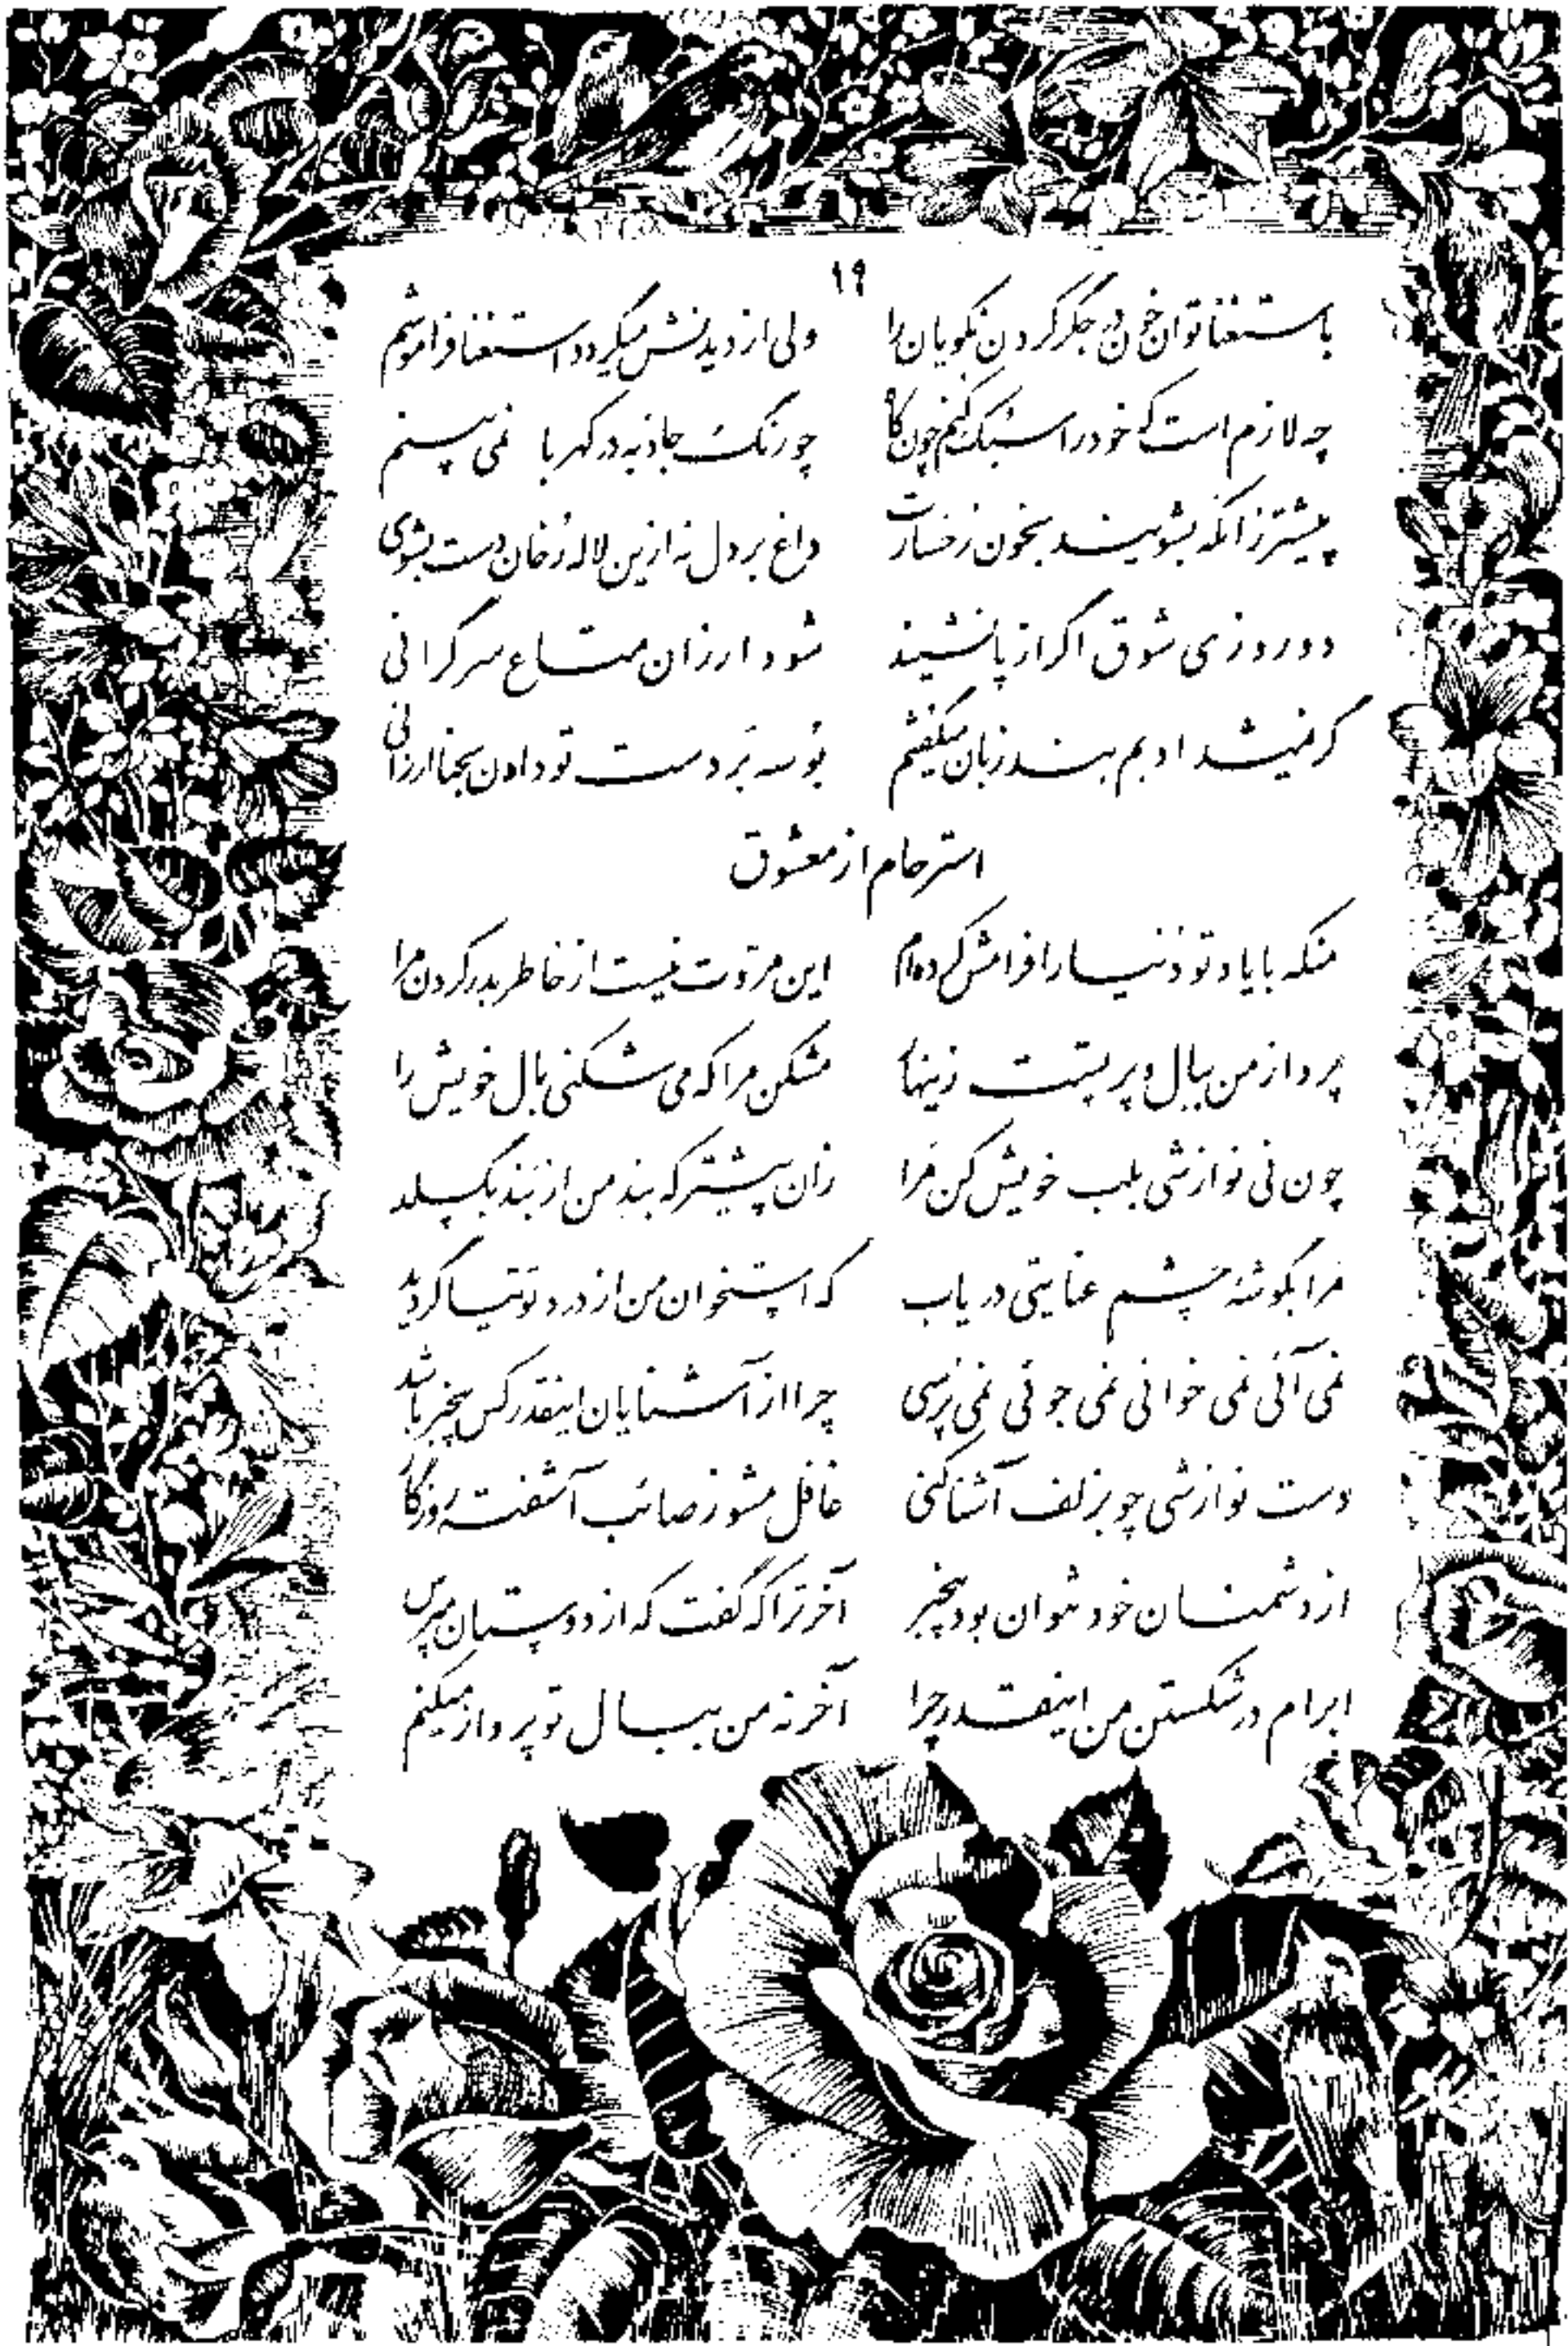 ۱۹
باستغنا توان خون در جگر کردن نکویان را ولی از دیدنش میگردد استغنا فراموشم
چه لازم است که خود را سبک کنیم چون کاه چو رنگ جاذبه در کهربا نمی بینم
پیشتر زانکه بشویند بخون رخسارت داغ بر دل نه ازین لاله رخان دست بشوی
دو روزی شوق اگر از پا نشیند شود ارزان متاع سرگرانی
گر نمیشد ادبم بند زبان میگفتم بوسه بر دست تو دادن بحنا ارزانی
استرحام از معشوق
منکه با یاد تو دنیا را فرامش کرده‌ام این مروت نیست از خاطر بدر کردن مرا
پرواز من ببال و پر تست زینهار مشکن مرا که می شکنی بال خویش را
چون نی نوازشی بلب خویش کن مرا زان پیشتر که بند من از بند بگسلد
مرا بگوشه چشم عنایتی دریاب که استخوان من از درد توتیا گردید
نمی آئی نمی خوانی نمی جوئی نمی پرسی چرا از آشنایان اینقدر کس بیخبر باشد
دست نوازشی چو بزلف آشنا کنی غافل مشو ز صائب آشفته روزگار
از دشمنان خود نتوان بود بیخبر آخر ترا که گفت که از دوستان مپرس
ابرام در شکستن من اینقدر چرا آخر نه من ببال تو پرواز میکنم